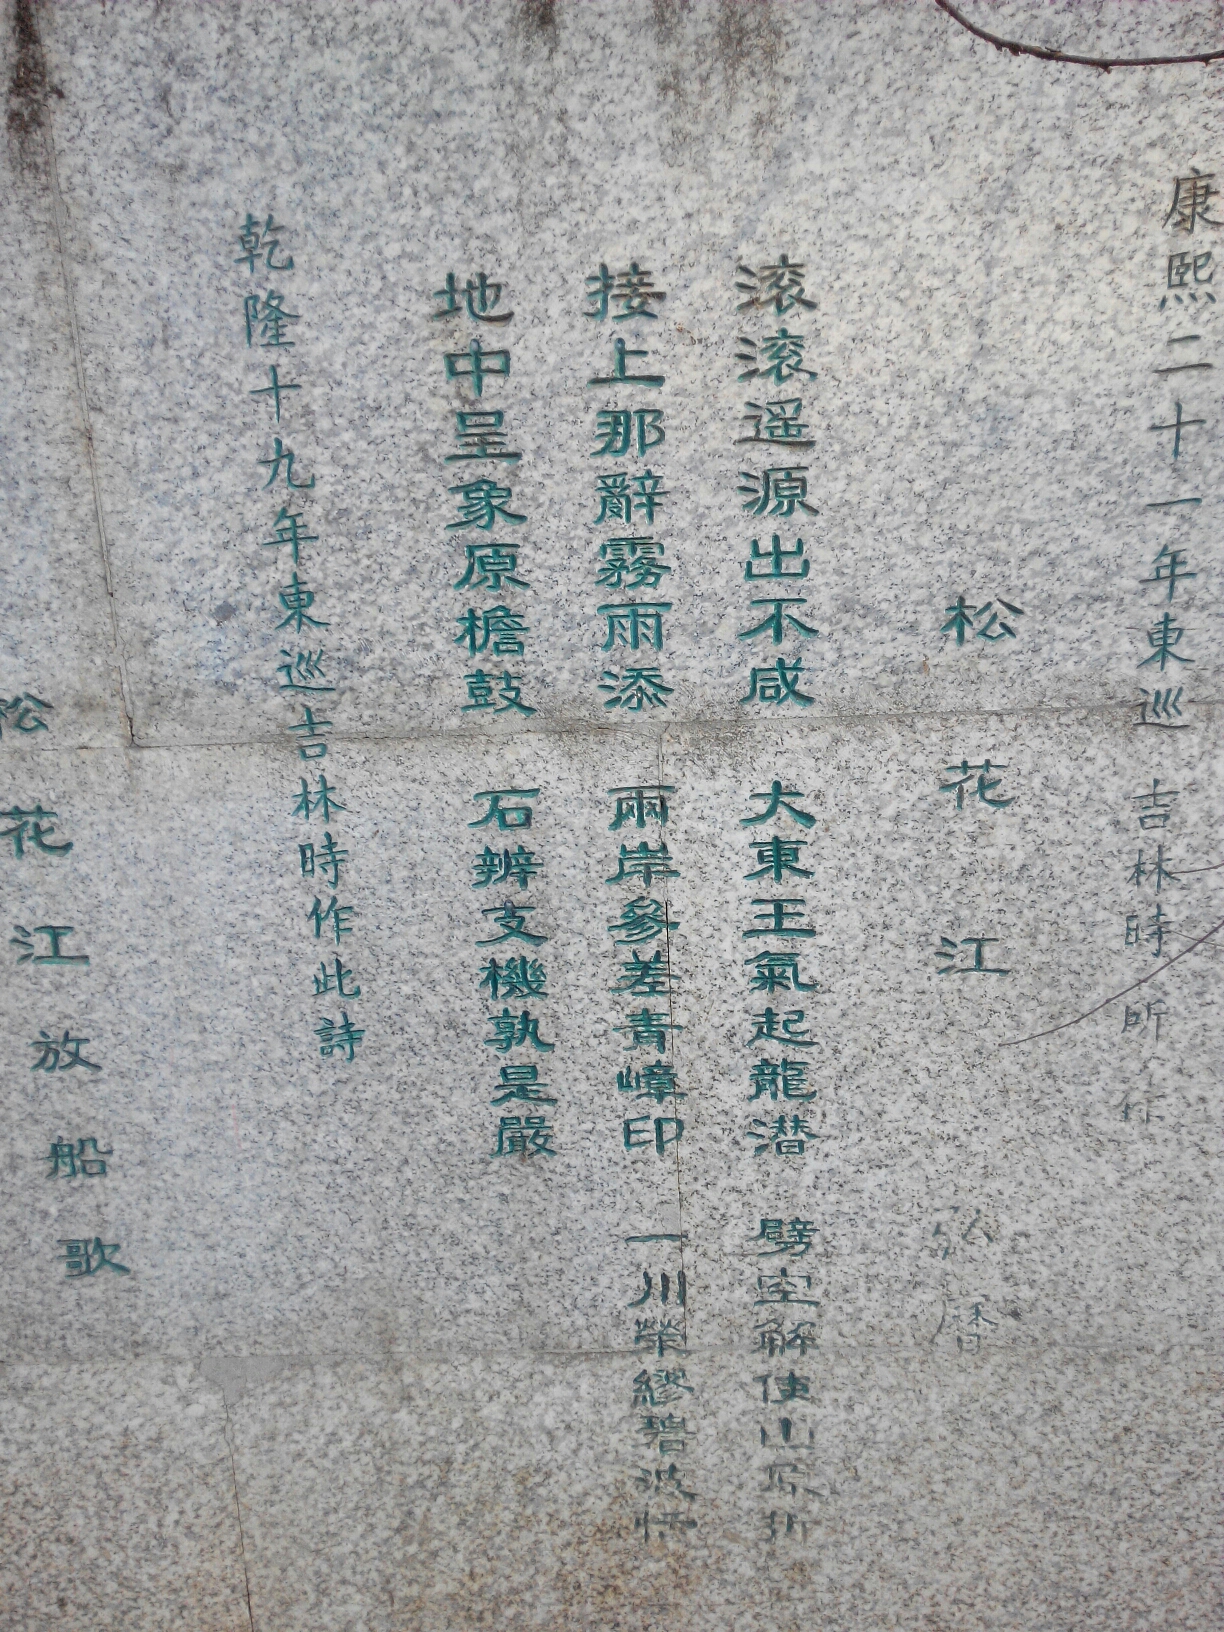 康熙二十一年東巡吉林時所作
松花江 弘曆
滚滚遥源出不咸 大東王氣起龍潜 劈空解使山原折
接上那辭霧雨添 兩岸參差青嶂印 一川縈繆碧波恬
地中呈象原檐鼓 石辨支機孰是嚴
乾隆十九年東巡吉林時作此詩
松花江放船歌